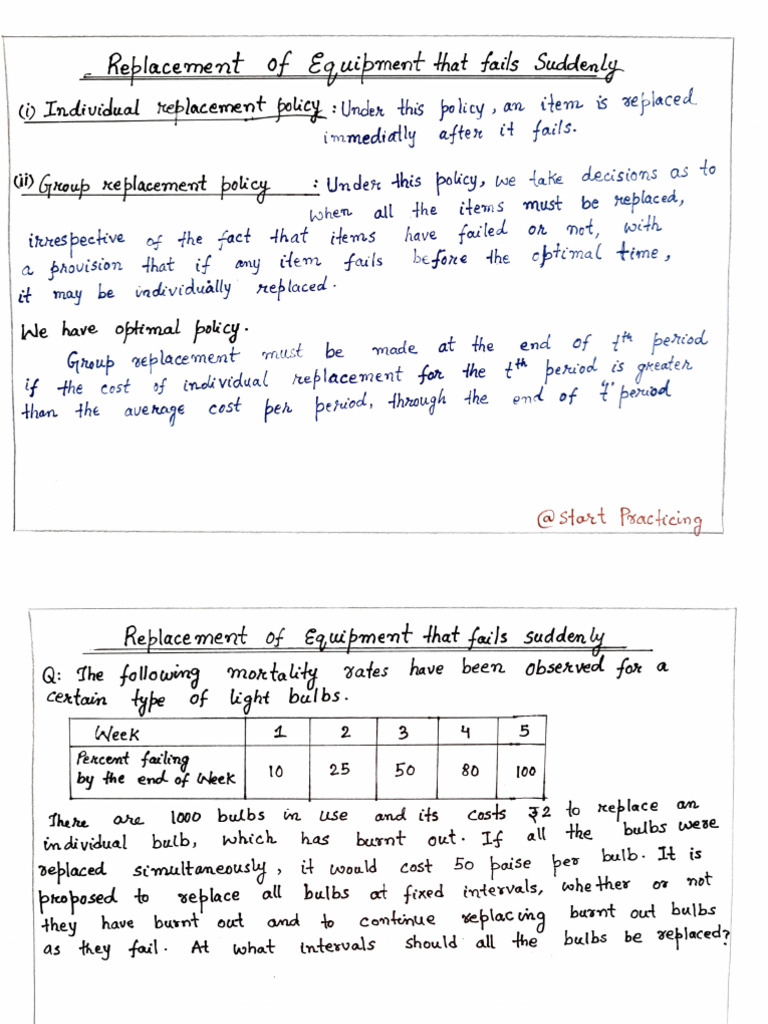 Replacement of Equipment that fails Suddenly
(i) Individual replacement policy : Under this policy, an item is replaced
immedially after it fails.
(ii) Group replacement policy : Under this policy, we take decisions as to
when all the items must be replaced,
irrespective of the fact that items have failed or not, with
a provision that if any item fails before the optimal time,
it may be individually replaced.
We have optimal policy.
Group replacement must be made at the end of tth period
if the cost of individual replacement for the tth period is greater
than the average cost per period, through the end of 't' period
@Start Practicing
Replacement of Equipment that fails suddenly
Q: The following mortality rates have been observed for a
certain type of light bulbs.
Week 1 2 3 4 5
Percent failing
by the end of Week 10 25 50 80 100
There are 1000 bulbs in use and its costs ₹2 to replace an
individual bulb, which has burnt out. If all the bulbs were
replaced simultaneously, it would cost 50 paise per bulb. It is
proposed to replace all bulbs at fixed intervals, whether or not
they have burnt out and to continue replacing burnt out bulbs
as they fail. At what intervals should all the bulbs be replaced?